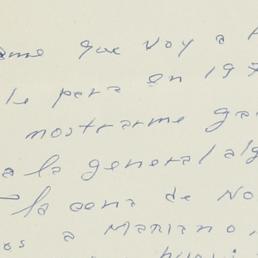 que voy a
le para en 197
mostrarme ga
a la general alg
la cena de No
os a Mariano,